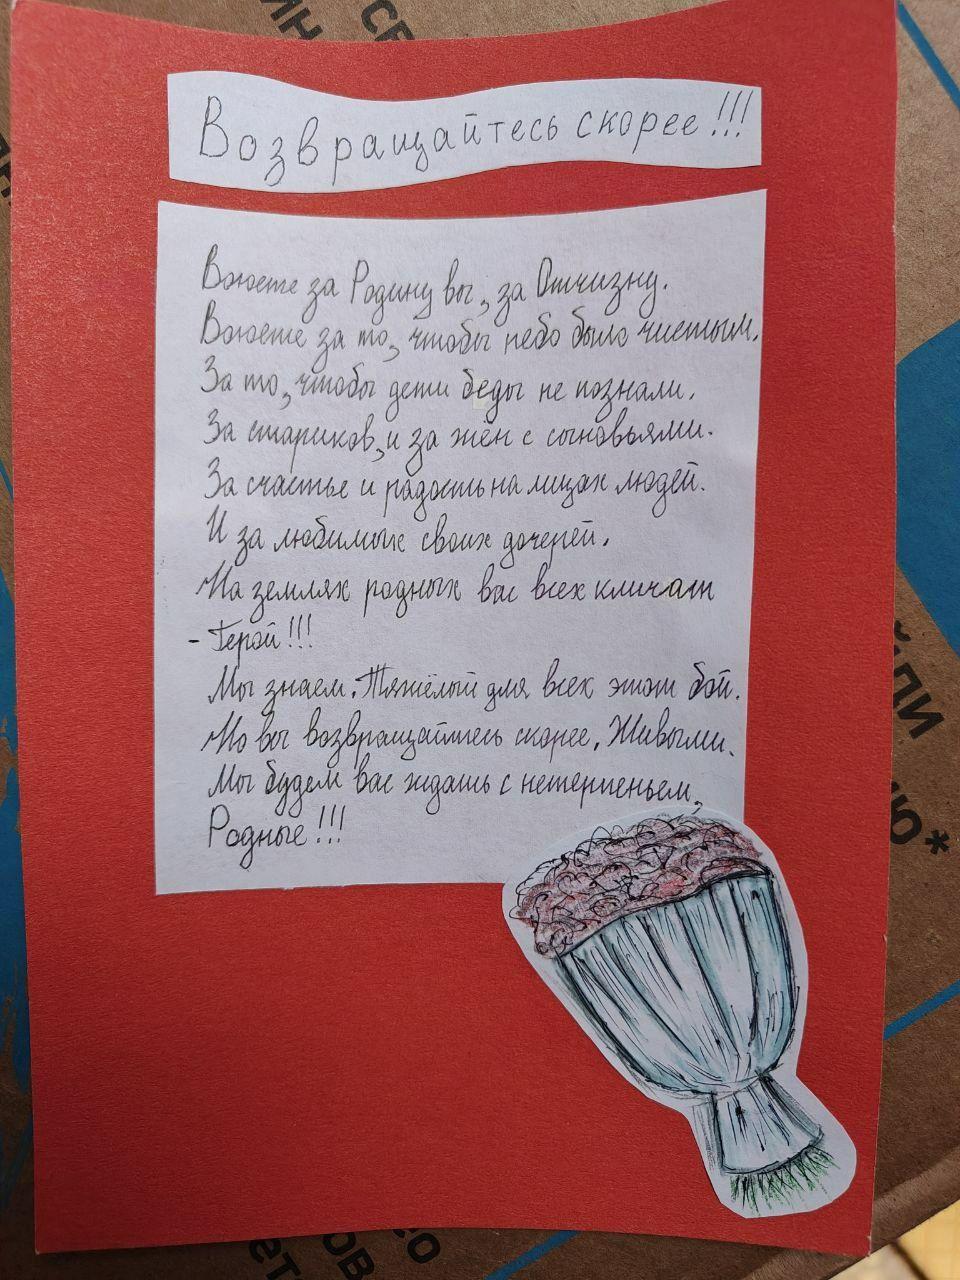 Возвращайтесь скорее!!!
Воюете за Родину вы, за Отчизну.
Воюете за то, чтобы небо было чистым.
За то, чтобы дети беды не познали.
За стариков, и за жён с сыновьями.
За счастье и радость на лицах людей.
И за любимых своих дочерей.
На землях родных вас всех кличат
- Герой!!!
Мы знаем. Тяжёлый для всех этот бой.
Но вы возвращайтесь скорее. Живыми.
Мы будем вас ждать с нетерпеньем,
Родные!!!